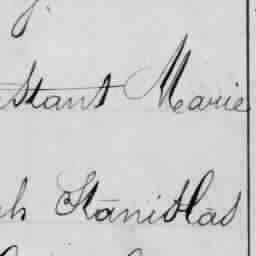 stant Marie
h Stanislas